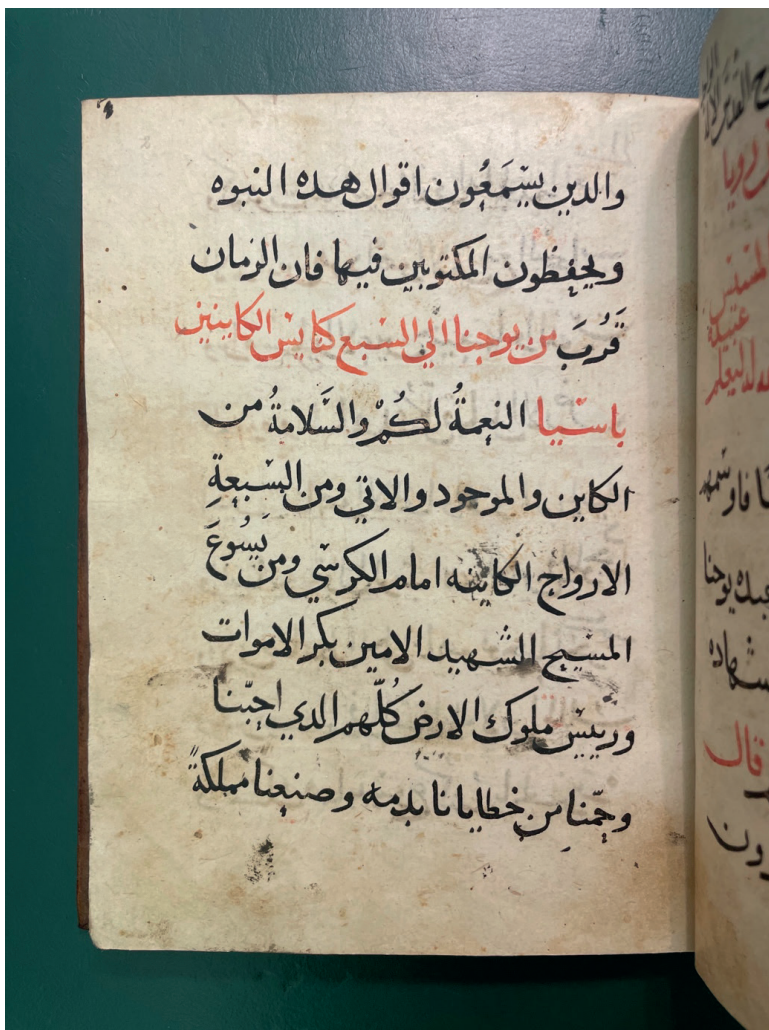 والدين يسمَعُون اقوال هده النبوه
ويحفظون المكتوبين فيها فان الزمان
قَرُبَ من يوحنا الي السبع كنايس الكاينين
باسيا النعمةُ لكُمْ والسَّلامةُ من
الكاين والموجود والاتي ومن السبعةِ
الارواح الكاينه امام الكرسي ومن يَسُوعَ
المسيح الشهيد الامين بكر الاموات
ورييس ملوك الارض كُلّهم الدي احبّنا
من خطايانا بدمه وصنعنا مملكةً
رويا
يوحنا
قال